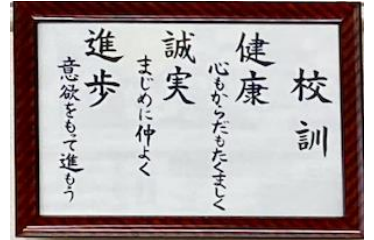 校訓
健康
心もからだもたくましく
誠実
まじめに仲よく
進歩
意欲をもって進もう